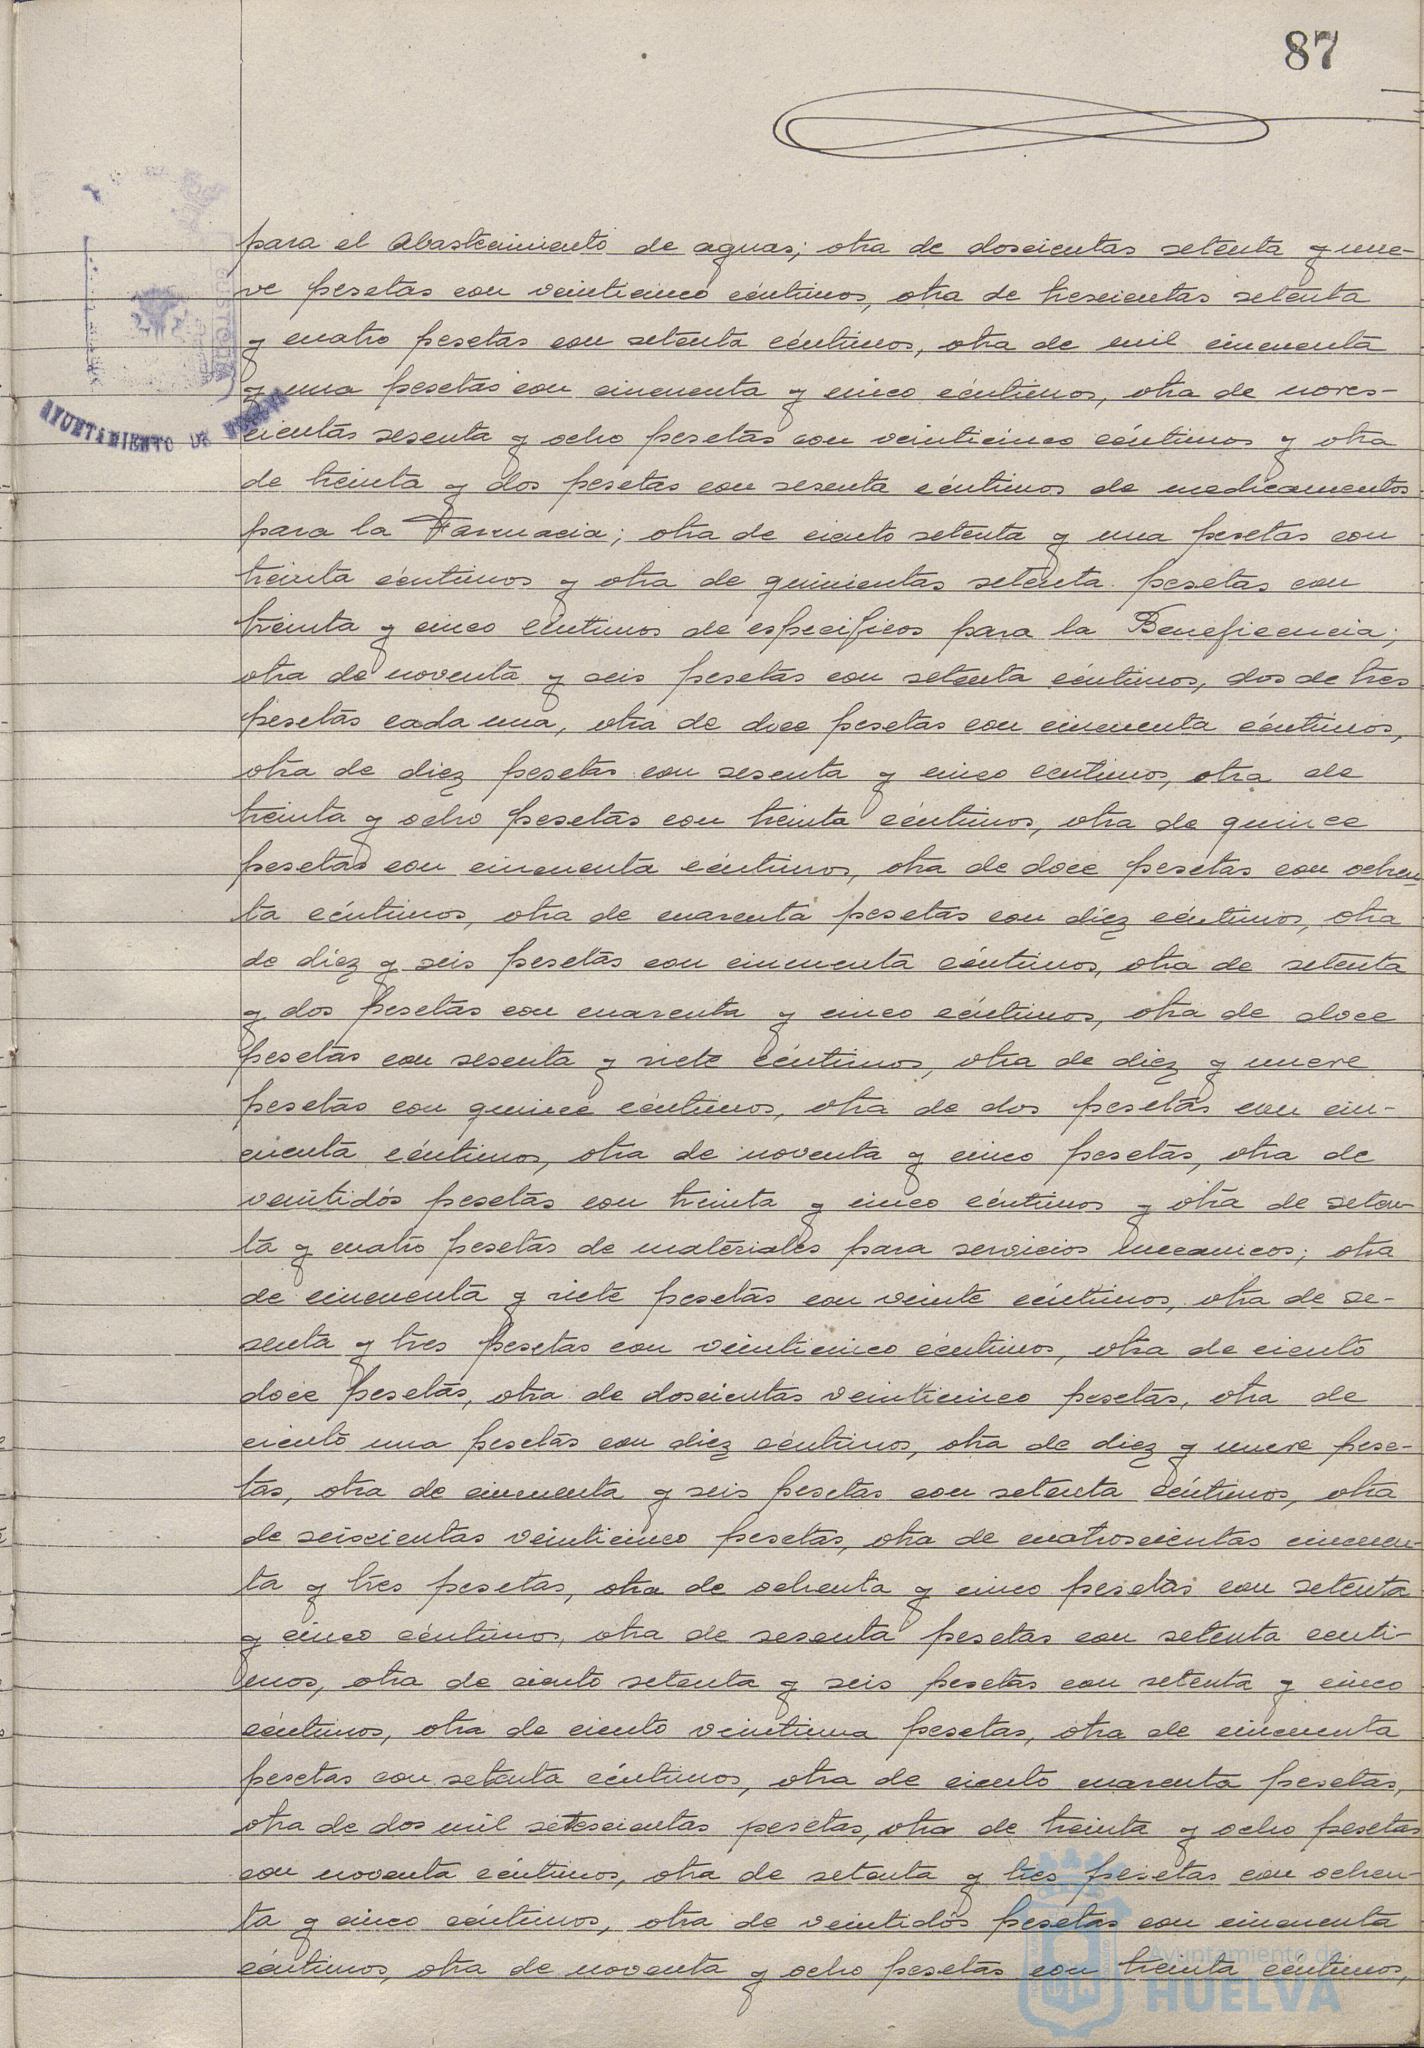 87
para el Abastecimiento de aguas; otra de doscientas setenta y nue-
ve pesetas con veinticinco céntimos, otra de trescientas setenta
y cuatro pesetas con setenta céntimos, otra de mil cincuenta
y una pesetas con cincuenta y cinco céntimos, otra de noves-
cientas sesenta y ocho pesetas con veinticinco céntimos y otra
de treinta y dos pesetas con sesenta céntimos de medicamentos
para la Farmacia; otra de ciento setenta y una pesetas con
treinta céntimos y otra de quinientas setenta pesetas con
treinta y cinco céntimos de específicos para la Beneficencia;
otra de noventa y seis pesetas con setenta céntimos, dos de tres
pesetas cada una, otra de doce pesetas con cincuenta céntimos,
otra de diez pesetas con sesenta y cinco centimos, otra de
treinta y ocho pesetas con treinta céntimos, otra de quince
pesetas con cincuenta céntimos, otra de doce pesetas con ochen-
ta céntimos, otra de cuarenta pesetas con diez céntimos, otra
de diez y seis pesetas con cincuenta céntimos, otra de setenta
y dos pesetas con cuarenta y cinco céntimos, otra de doce
pesetas con sesenta y siete céntimos, otra de diez y nueve
pesetas con quince céntimos, otra de dos pesetas con cin-
cuenta céntimos, otra de noventa y cinco pesetas, otra de
veintidós pesetas con treinta y cinco céntimos y otra de seten-
ta y cuatro pesetas de materiales para servicios mecanicos; otra
de cincuenta y siete pesetas con veinte céntimos, otra de se-
senta y tres pesetas con veinticinco céntimos, otra de ciento
doce pesetas, otra de doscientas veinticinco pesetas, otra de
ciento una pesetas con diez céntimos, otra de diez y nueve pese-
tas, otra de cincuenta y seis pesetas con setenta céntimos, otra
de seiscientas veinticinco pesetas, otra de cuatroscientas cincuen-
ta y tres pesetas, otra de ochenta y cinco pesetas con setenta
y cinco céntimos, otra de sesenta pesetas con setenta centi-
mos, otra de ciento setenta y seis pesetas con setenta y cinco
céntimos, otra de ciento veintiuna pesetas, otra de cincuenta
pesetas con setenta céntimos, otra de ciento cuarenta pesetas,
otra de dos mil setescientas pesetas, otra de treinta y ocho pesetas
con noventa céntimos, otra de setenta y tres pesetas con ochen-
ta y cinco céntimos, otra de veintidós pesetas con cincuenta
céntimos, otra de noventa y ocho pesetas con treinta céntimos,
CUSTODIA
AYUNTAMIENTO DE HUELVA
Ayuntamiento de
HUELVA